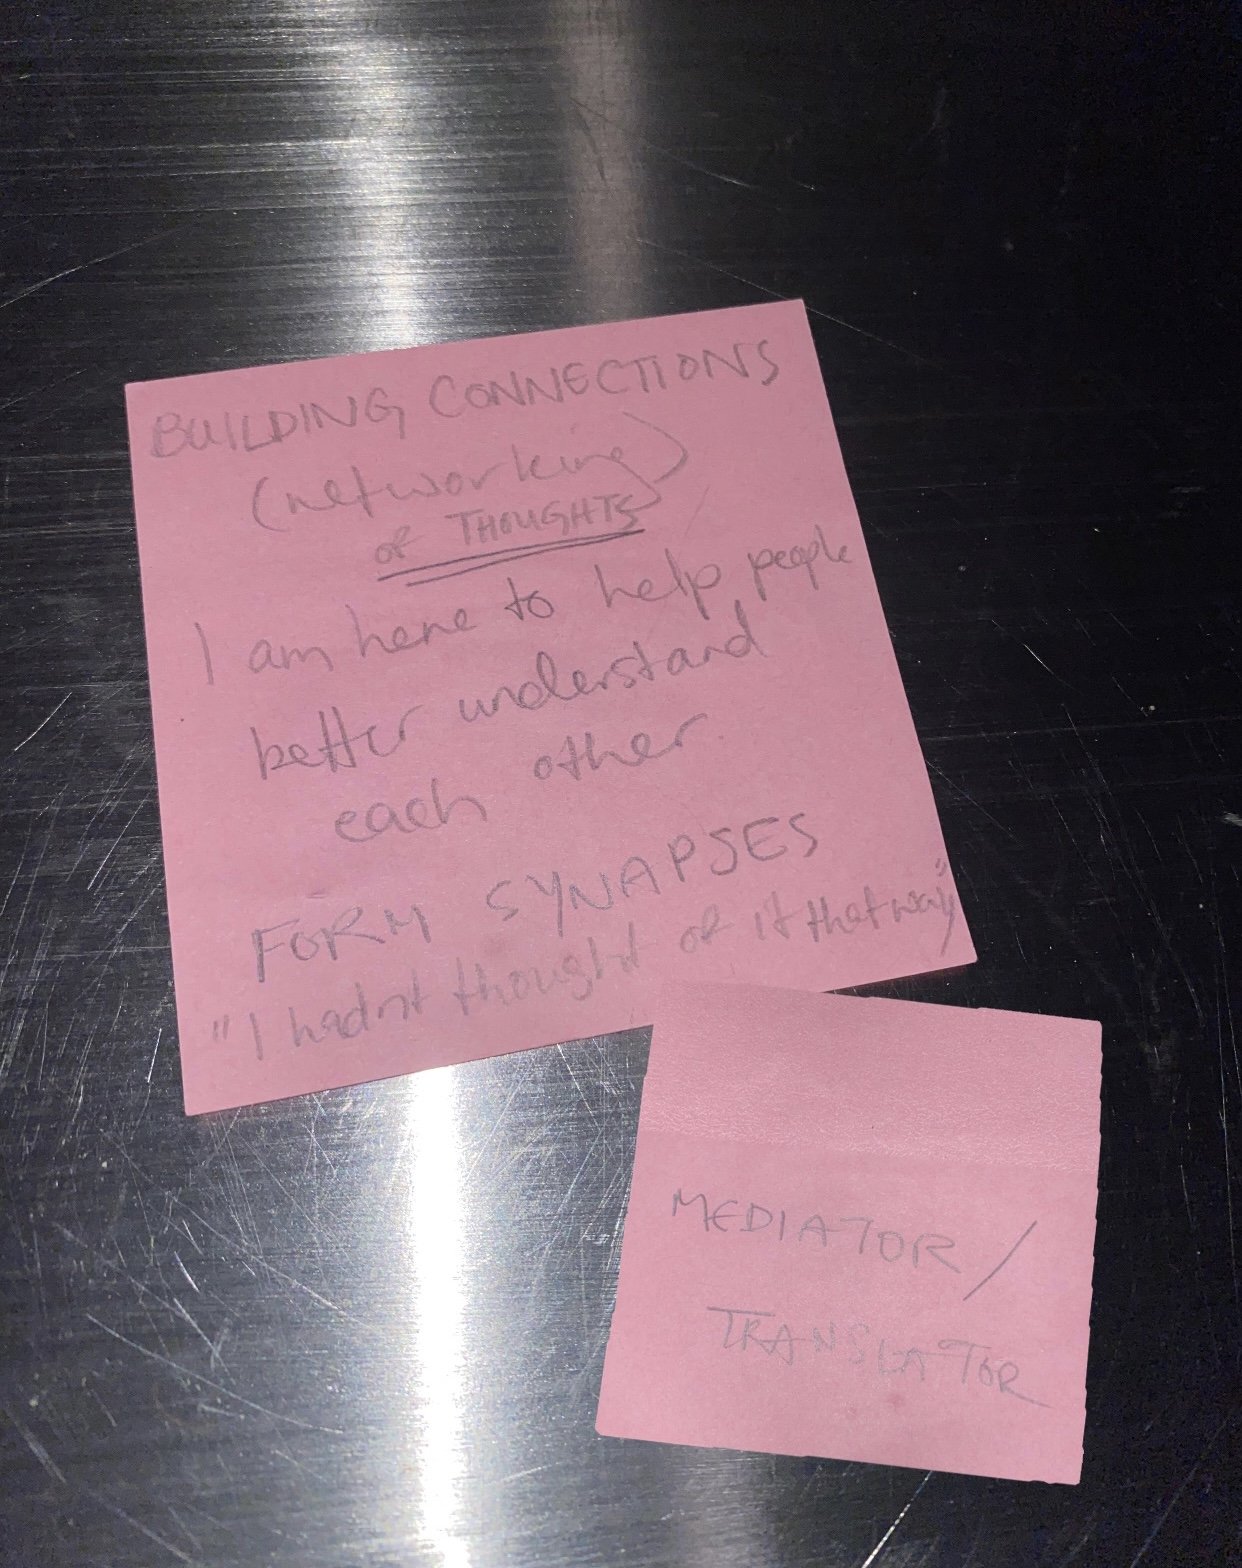 BUILDING CONNECTIONS
(networking)
of THOUGHTS
I am here to help people
better understand
each other.
FORM SYNAPSES
"I hadnt thought of it that way"
MEDIATOR /
TRANSLATOR